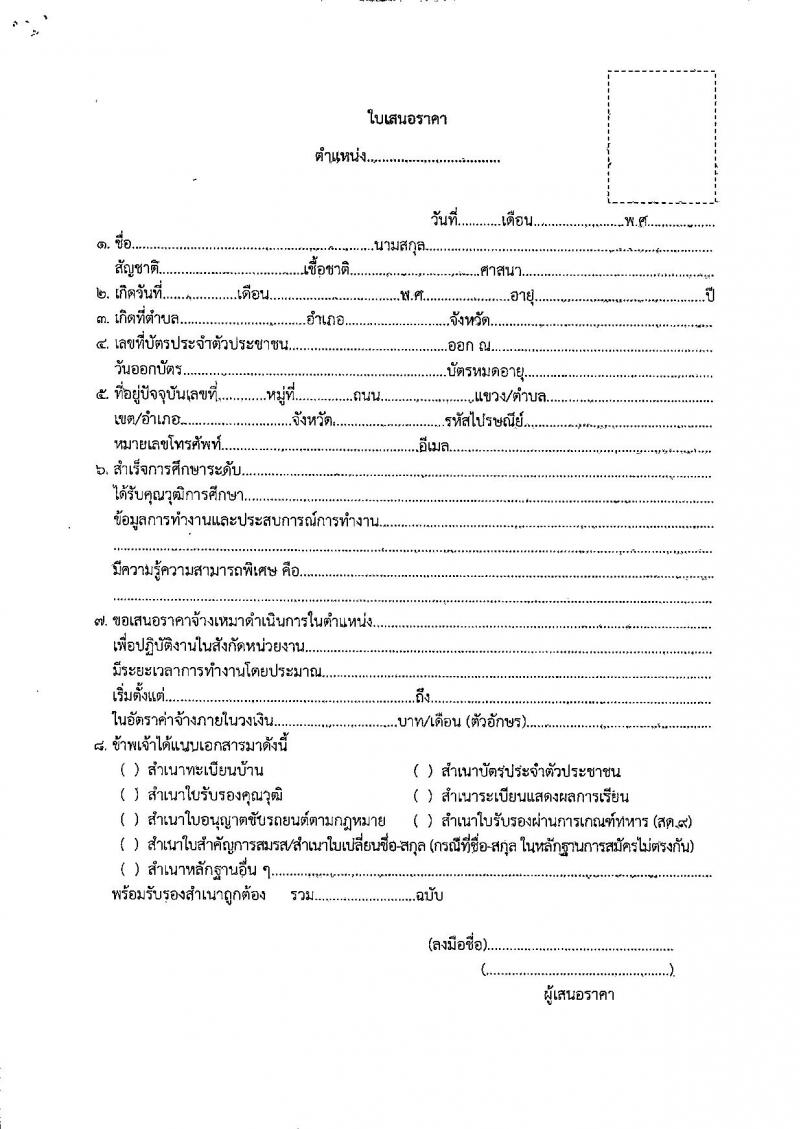 ใบเสนอราคา
ตำแหน่ง..................................
วันที่...........เดือน.......................พ.ศ.................
๑. ชื่อ.............................................................นามสกุล.........................................................................
สัญชาติ.....................................เชื้อชาติ.................................ศาสนา.................................................
๒. เกิดวันที่...................เดือน.................................พ.ศ......................อายุ...........................................ปี
๓. เกิดที่ตำบล................................อำเภอ...........................จังหวัด.........................................................
๔. เลขที่บัตรประจำตัวประชาชน........................................ออก ณ........................................................
วันออกบัตร...................................................................บัตรหมดอายุ................................................
๕. ที่อยู่ปัจจุบันเลขที่.............หมู่ที่...............ถนน........................แขวง/ตำบล..........................................
เขต/อำเภอ............................จังหวัด.............................รหัสไปรษณีย์................................................
หมายเลขโทรศัพท์..................................................อีเมล...................................................................
๖. สำเร็จการศึกษาระดับ.......................................................................................................................
ได้รับคุณวุฒิการศึกษา......................................................................................................................
ข้อมูลการทำงานและประสบการณ์การทำงาน.....................................................................................
.......................................................................................................................................................
มีความรู้ความสามารถพิเศษ คือ.........................................................................................................
.......................................................................................................................................................
๗. ขอเสนอราคาจ้างเหมาดำเนินการในตำแหน่ง......................................................................................
เพื่อปฏิบัติงานในสังกัดหน่วยงาน.......................................................................................................
มีระยะเวลาการทำงานโดยประมาณ...................................................................................................
เริ่มตั้งแต่...............................................................ถึง.......................................................................
ในอัตราค่าจ้างภายในวงเงิน...............................บาท/เดือน (ตัวอักษร)...............................................
๘. ข้าพเจ้าได้แนบเอกสารมาดังนี้
( ) สำเนาทะเบียนบ้าน ( ) สำเนาบัตรประจำตัวประชาชน
( ) สำเนาใบรับรองคุณวุฒิ ( ) สำเนาระเบียนแสดงผลการเรียน
( ) สำเนาใบอนุญาตขับรถยนต์ตามกฎหมาย ( ) สำเนาใบรับรองผ่านการเกณฑ์ทหาร (สด.๙)
( ) สำเนาใบสำคัญการสมรส/สำเนาใบเปลี่ยนชื่อ-สกุล (กรณีที่ชื่อ-สกุล ในหลักฐานการสมัครไม่ตรงกัน)
( ) สำเนาหลักฐานอื่น ๆ................................................................................................................
พร้อมรับรองสำเนาถูกต้อง รวม.........................ฉบับ
(ลงมือชื่อ)...............................................
(...............................................)
ผู้เสนอราคา